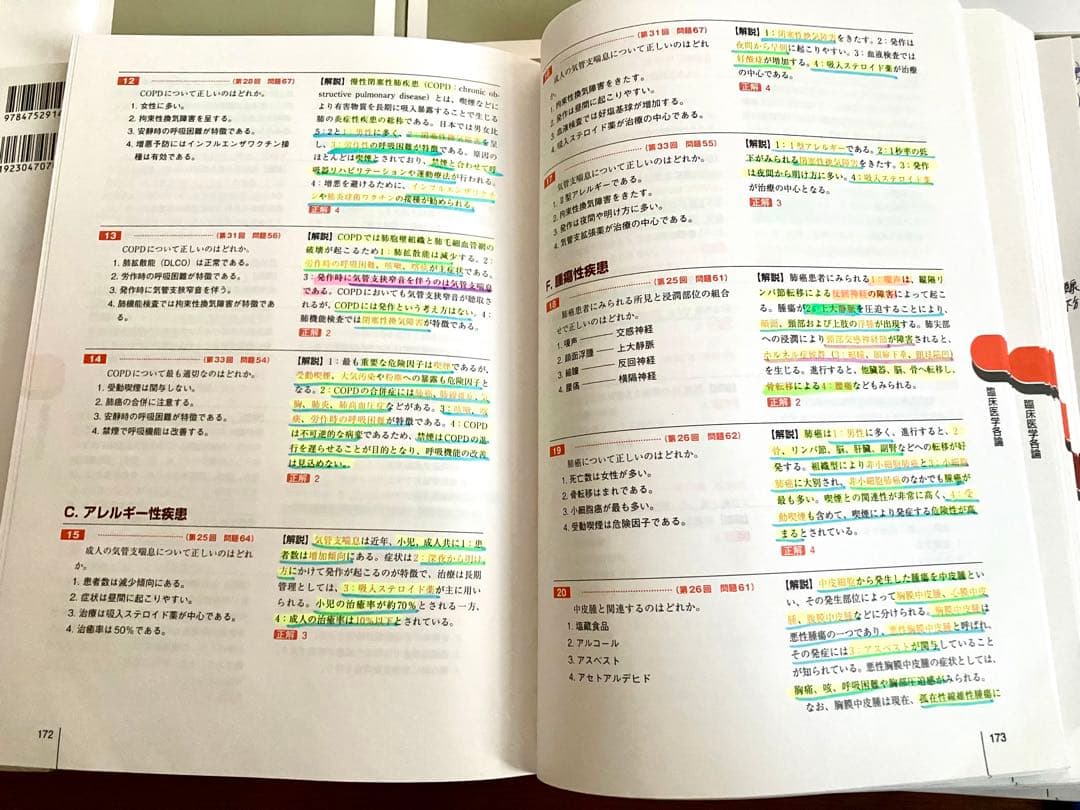 9784752914
192304707
12 (第28回 問題67)
COPDについて正しいのはどれか。
1. 女性に多い。
2. 拘束性換気障害を呈する。
3. 安静時の呼吸困難が特徴である。
4. 増悪予防にはインフルエンザワクチン接
種は有効である。
【解説】慢性閉塞性肺疾患（COPD：chronic ob-
structive pulmonary disease）とは、喫煙などに
より有害物質を長期に吸入暴露することで生じる
肺の炎症性疾患の総称である。日本では男女比
5：2と1：男性に多く、2：閉塞性換気障害を呈
し、3：労作性の呼吸困難が特徴である。原因の
ほとんどは喫煙とされており、禁煙と合わせて呼
吸器リハビリテーションや運動療法が行われる。
4：増悪を避けるために、インフルエンザワクチ
ンや肺炎球菌ワクチンの接種が勧められる。
正解 4
13 (第31回 問題56)
COPDについて正しいのはどれか。
1. 肺拡散能（DLCO）は正常である。
2. 労作時の呼吸困難が特徴である。
3. 発作時に気管支狭窄音を伴う。
4. 肺機能検査では拘束性換気障害が特徴であ
る。
【解説】COPDでは肺胞壁組織と肺毛細血管網の
破壊が起こるため1：肺拡散能は減少する。2：
労作時の呼吸困難、咳嗽、喀痰が主症状である。
3：発作時に気管支狭窄音を伴うのは気管支喘息
である。COPDにおいても気管支狭窄音が聴取さ
れるが、COPDには発作という考え方はない。4：
肺機能検査では閉塞性換気障害が特徴である。
正解 2
14 (第33回 問題54)
COPDについて最も適切なのはどれか。
1. 受動喫煙は関与しない。
2. 肺癌の合併に注意する。
3. 安静時の呼吸困難が特徴である。
4. 禁煙で呼吸機能は改善する。
【解説】1：最も重要な危険因子は喫煙であるが、
受動喫煙、大気汚染や粉塵への暴露も危険因子と
なる。2：COPDの合併症には肺癌、肺線維症、気
胸、肺炎、肺高血圧症などがある。3：咳嗽、喀
痰、労作時の呼吸困難が特徴である。4：COPD
は不可逆的な病変であるため、禁煙はCOPDの進
行を遅らせることが目的となり、呼吸機能の改善
は見込めない。
正解 2
C. アレルギー性疾患
15 (第25回 問題64)
成人の気管支喘息について正しいのはどれ
か。
1. 患者数は減少傾向にある。
2. 症状は昼間に起こりやすい。
3. 治療は吸入ステロイド薬が中心である。
4. 治癒率は50%である。
【解説】気管支喘息は近年、小児、成人共に1：患
者数は増加傾向にある。症状は2：深夜から明け
方にかけて発作が起こるのが特徴で、治療は長期
管理としては、3：吸入ステロイド薬が主に用い
られる。小児の治癒率が約70%とされる一方、
4：成人の治癒率は10%以下とされている。
正解 3
172
(第31回 問題67)
成人の気管支喘息について正しいのはどれ
か。
1. 拘束性換気障害をきたす。
2. 発作は昼間に起こりやすい。
3. 血液検査では好塩基球が増加する。
4. 吸入ステロイド薬が治療の中心である。
【解説】1：閉塞性換気障害をきたす。2：発作は
夜間から早朝に起こりやすい。3：血液検査では
好酸球が増加する。4：吸入ステロイド薬が治療
の中心である。
正解 4
17 (第33回 問題55)
気管支喘息について正しいのはどれか。
1. Ⅱ型アレルギーである。
2. 拘束性換気障害をきたす。
3. 発作は夜間や明け方に多い。
4. 気管支拡張薬が治療の中心である。
【解説】1：Ⅰ型アレルギーである。2：1秒率の低
下がみられる閉塞性換気障害をきたす。3：発作
は夜間から明け方に多い。4：吸入ステロイド薬
が治療の中心となる。
正解 3
F. 腫瘍性疾患
18 (第25回 問題61)
肺癌患者にみられる所見と浸潤部位の組合
せで正しいのはどれか。
1. 嗄声 ―― 交感神経
2. 顔面浮腫 ―― 上大静脈
3. 縮瞳 ―― 反回神経
4. 腰痛 ―― 横隔神経
【解説】肺癌患者にみられる1：嗄声は、縦隔リ
ンパ節転移による反回神経の障害によって起こ
る。腫瘍が2：上大静脈を圧迫することにより、
顔面、頸部および上肢の浮腫が出現する。肺尖部
への浸潤により頸部交感神経節が障害されると、
ホルネル症候群（3：縮瞳、眼瞼下垂、眼球陥凹）
を生じる。進行すると、他臓器、脳、骨へ転移し、
骨転移による4：腰痛などもみられる。
正解 2
19 (第26回 問題62)
肺癌について正しいのはどれか。
1. 死亡数は女性が多い。
2. 骨転移はまれである。
3. 小細胞癌が最も多い。
4. 受動喫煙は危険因子である。
【解説】肺癌は1：男性に多く、進行すると、2：
骨、リンパ節、脳、肝臓、副腎などへの転移が好
発する。組織型により非小細胞肺癌と3：小細胞
肺癌に大別され、非小細胞肺癌のなかでも腺癌が
最も多い。喫煙との関連性が非常に高く、4：受
動喫煙も含めて、喫煙により発症する危険性が高
まるとされている。
正解 4
20 (第26回 問題61)
中皮腫と関連するのはどれか。
1. 塩蔵食品
2. アルコール
3. アスベスト
4. アセトアルデヒド
【解説】中皮細胞から発生した腫瘍を中皮腫とい
い、その発生部位によって胸膜中皮腫、心膜中皮
腫、腹膜中皮腫などに分けられる。胸膜中皮腫は
悪性腫瘍の一つであり、悪性胸膜中皮腫と呼ばれ、
その発症には3：アスベストが関与していること
が知られている。悪性胸膜中皮腫の症状としては、
胸痛、咳、呼吸困難や胸部圧迫感がみられる。
なお、胸膜中皮腫は現在、孤在性線維性腫瘍に
173
臨床医学各論
臨床医学各論